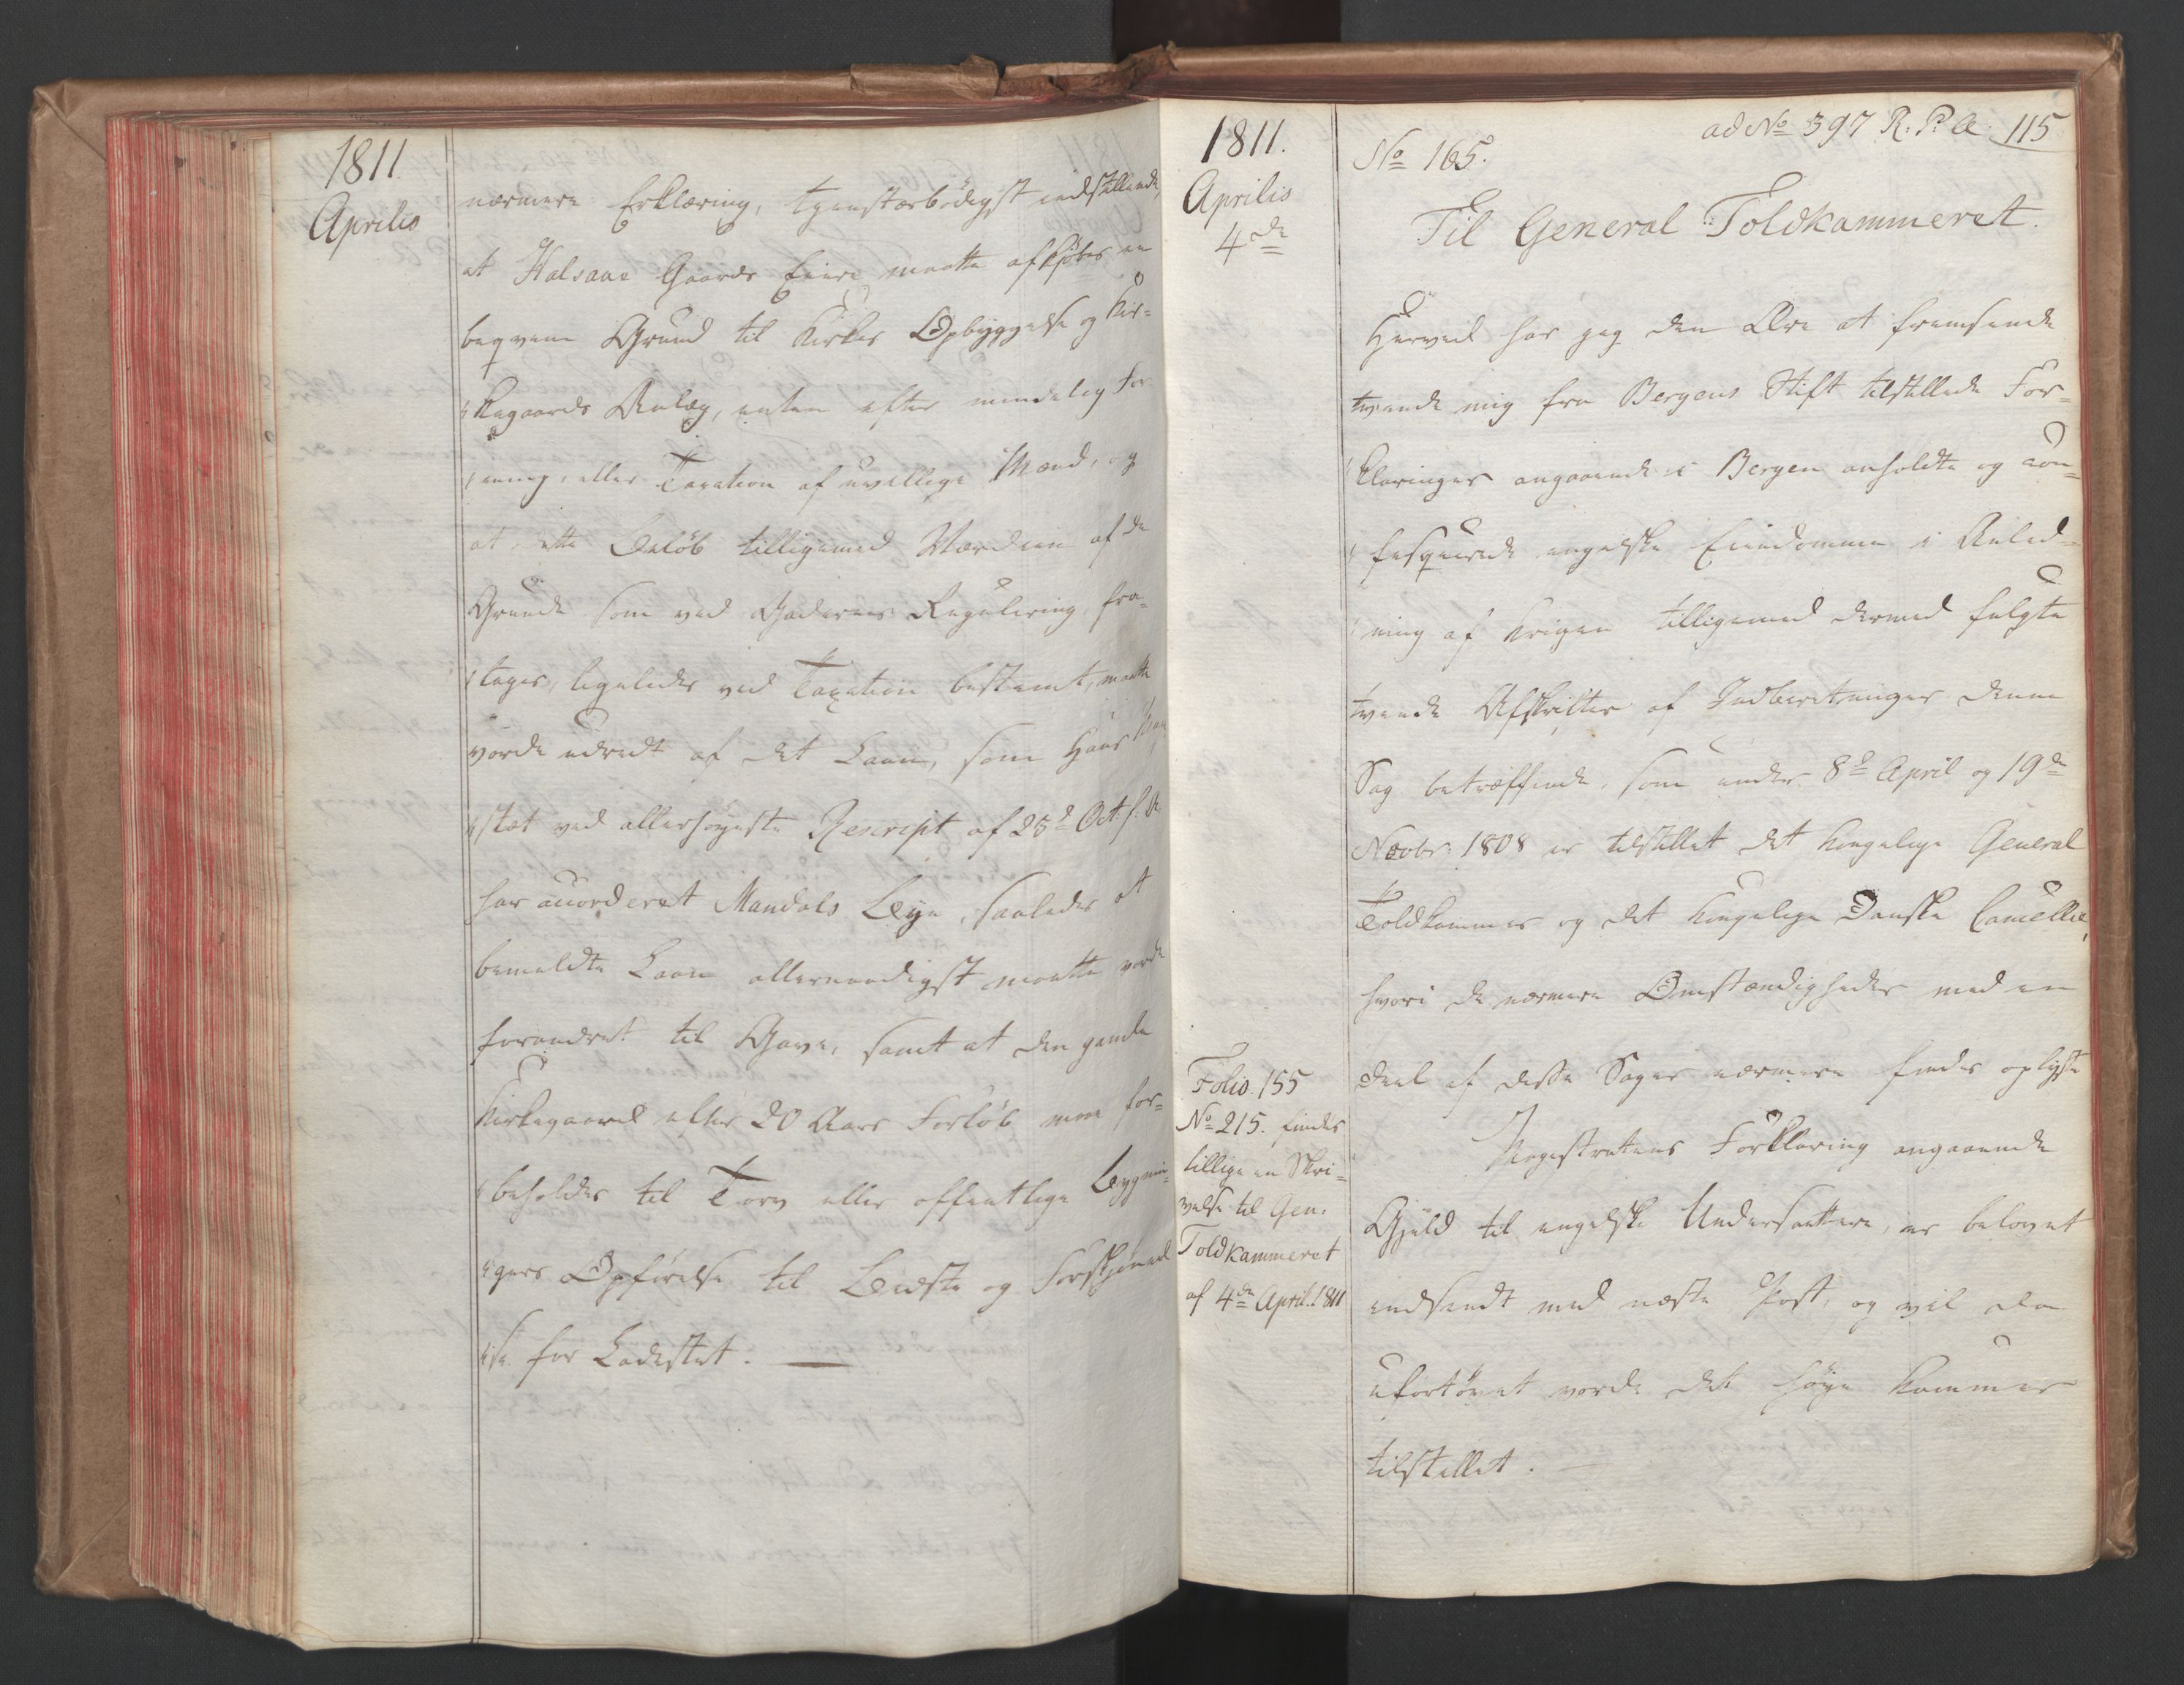 1811.
Aprilis
nærmere Erklæring, tjenstærbødigst indstillende,
at Halsaae Gaards Eiere maatte afkjøbes en
beqvem Grund til Kirkes Opbyggelse og Kir=
kegaards Anlæg, enten efter mindelig For
ening, eller Taxation af uvillige Mænd, og
at dette Beløb tilligemed Værdien af de
Grunde som ved Gadernes Regulering, fra=
tages, ligeledes ved Taxation bestemt, maatte
vorde udredt af det Laan, som Hans
stæt ved allerhøyeste Rescript af 23d Oct. f. A.
har accorderet Mandals Bye, saaledes at
bemeldte Laan allernaadigst maatte vorde
forandret til Gave, samt at den gamle
Kirkegaard efter 20 Aars Forløb maa for=
beholdes til Torv eller offentlige Bygnin=
gers Opførelse til Bedste og Forskjønnel
se for Ladestedet. —
1811.
Aprilis
4de
Folio. 155
No 215. findes
tillige en Skri=
velse til Gen:
Toldkammeret
af 4de April. 1811
ad No 397 R: P: A: 115
No 165.
Til General Toldkammeret.
Herved har jeg den Ære at fremsende
tvende mig fra Bergens Stift tilstillede For=
klaringer angaaende i Bergen anholdte og con=
fisquerede engelske Eiendomme i Anled=
ning af Krigen tilligemed dermed fulgte
tvende Afskrifter af Indberetninger denne
Sag betræffende, som under 8d April og 19de
Novbr: 1808 er tilstillet det Kongelige General
Toldkammer og det Kongelige Danske Cancellie,
hvori de nærmere Omstændigheder med en
Deel af disse Sager nærmere findes oplyste
Magistratens Forklaring angaaende
Gjeld til engelske Undersaattere, er belovet
indsendt med næste Post, og vil da
ufortøvet vorde det høye Kammer
tilstillet. —